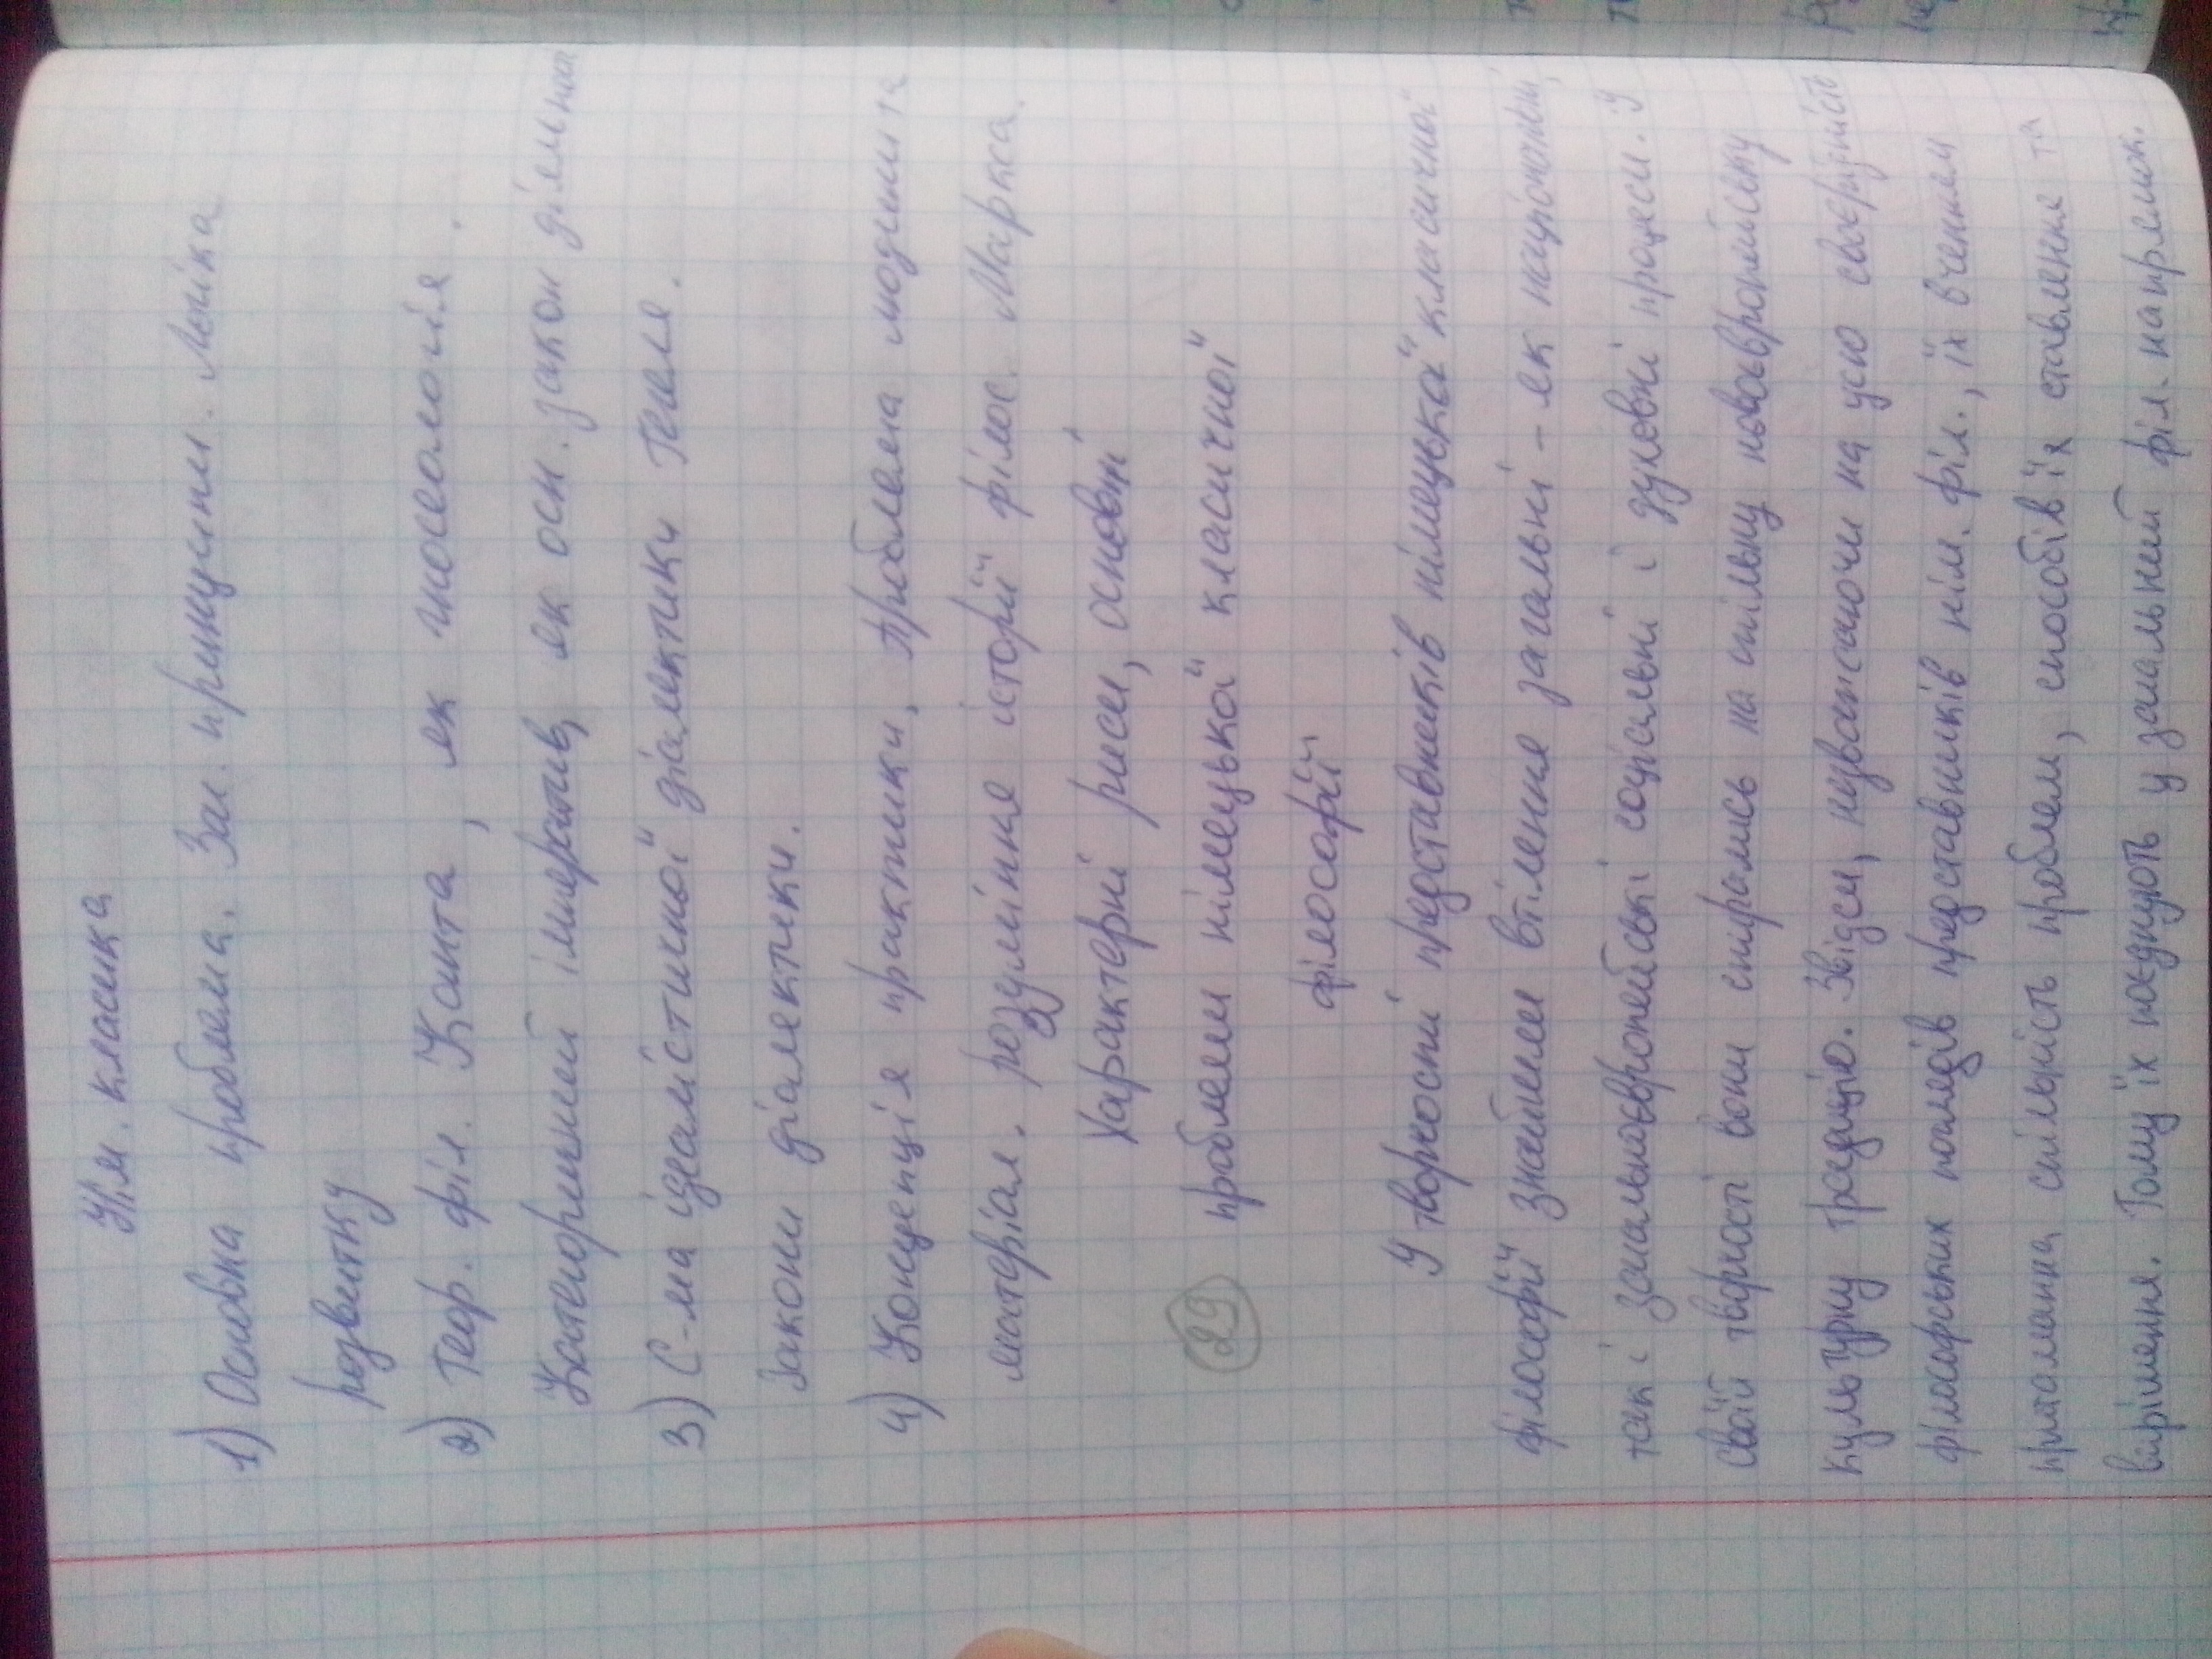 Нім. класика
1) Основна проблема. Заг. принципи. Логіка
розвитку
2) Теор. філ. Канта, як гносеологія.
Категоричний імператив, як осн. закон діяльності
3) С-ма ідеалістичної діалектики Гегеля.
Закони діалектики.
4) Концепція практики. Проблема людини та
матеріал. розуміння історії філос. Маркса.
Характерні риси, основні
29 проблеми німецької класичної
філософії
У творчості представників німецької класичної
філософії знайшли втілення загальні - як національні,
так і загальноєвропейські соціальні і духовні процеси. У
своїй творчості вони спирались на спільну новоєвропейську
культурну традицію. Звідси, незважаючи на усю своєрідність
філософських поглядів представників нім. філ., їх вченням
притаманна спільність проблем, способів їх ставлення та
вирішення. Тому їх поєднують у загальний філ. напрямок.